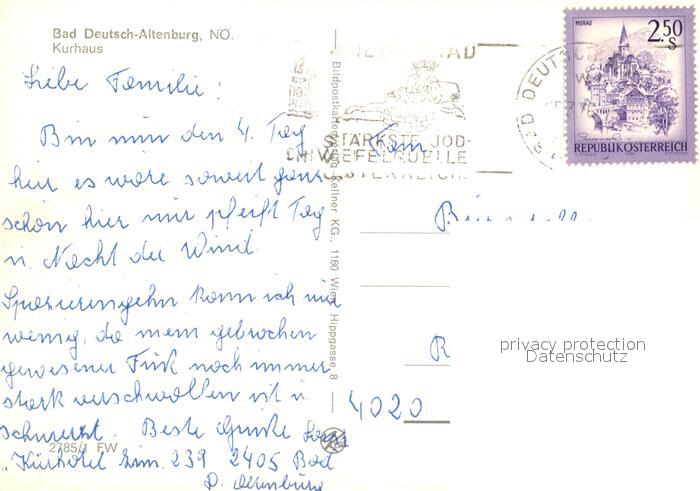 Bad Deutsch-Altenburg, NÖ.
Kurhaus
Liebe Familie!
Bin nun den 4. Tag
hier es wäre soweit ganz
schön hier nur pfeift Tag
u. Nacht der Wind.
Spazierengehn kann ich nur
wenig, da mein gebrochen
gewesener Fuß noch immer
stark verschwollen ist u.
schmerzt. Beste Grüße
2785/1 FW
"Kurhotel Zim. 239 2405 Bad
D. Altenburg
Bildpostkartenverlag Kellner KG., 1160 Wien, Hippgasse 8
HEILBAD
STÄRKSTE JOD-
SCHWEFELQUELLE
ÖSTERREICHS
BAD DEUTSCH
MURAU
2.50
S
REPUBLIK ÖSTERREICH
Fam.
R
4020
privacy protection
Datenschutz